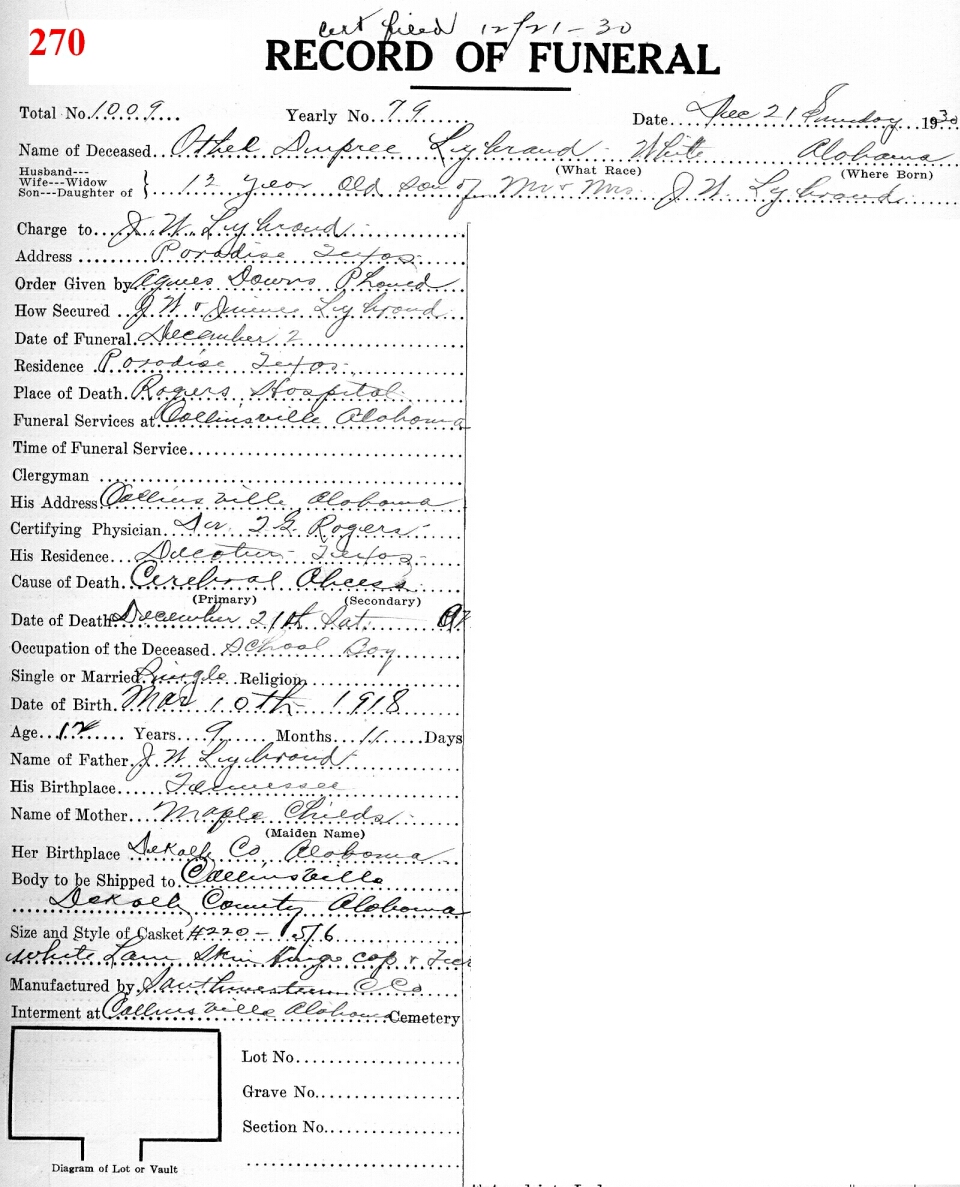 cert filed 12/21-30
270
RECORD OF FUNERAL
Total No. 1009 Yearly No. 79 Date Dec 21 Sunday 1930
Name of Deceased Othel Dupree Lybrand - White Alabama
(What Race) (Where Born)
Husband---
Wife---Widow
Son---Daughter of } 12 year old son of Mr & Mrs. J W Lybrand
Charge to J. W. Lybrand
Address Paradise Texas
Order Given by Agnes Downs Phoned
How Secured J W & Lybrand
Date of Funeral December 2
Residence Paradise Texas
Place of Death Rogers Hospital
Funeral Services at Collinsville Alabama
Time of Funeral Service
Clergyman
His Address Collinsville Alabama
Certifying Physician Dr. T G Rogers
His Residence Decatur - Texas -
Cause of Death Cerebral Abcess
(Primary) (Secondary)
Date of Death December 21th Sat.
Occupation of the Deceased School Boy
Single or Married Single Religion
Date of Birth Mar 10th 1918
Age 12 Years 9 Months 11 Days
Name of Father J W Lybrand
His Birthplace Tennessee
Name of Mother Maple Childs
(Maiden Name)
Her Birthplace DeKalb Co, Alabama
Body to be Shipped to Collinsville
DeKalb County Alabama
Size and Style of Casket #220 - 5/6
White Lam Skin Hinge cap &
Manufactured by Southwestern C Co
Interment at Collinsville Alabama Cemetery
Lot No.
Grave No.
Section No.
Diagram of Lot or Vault